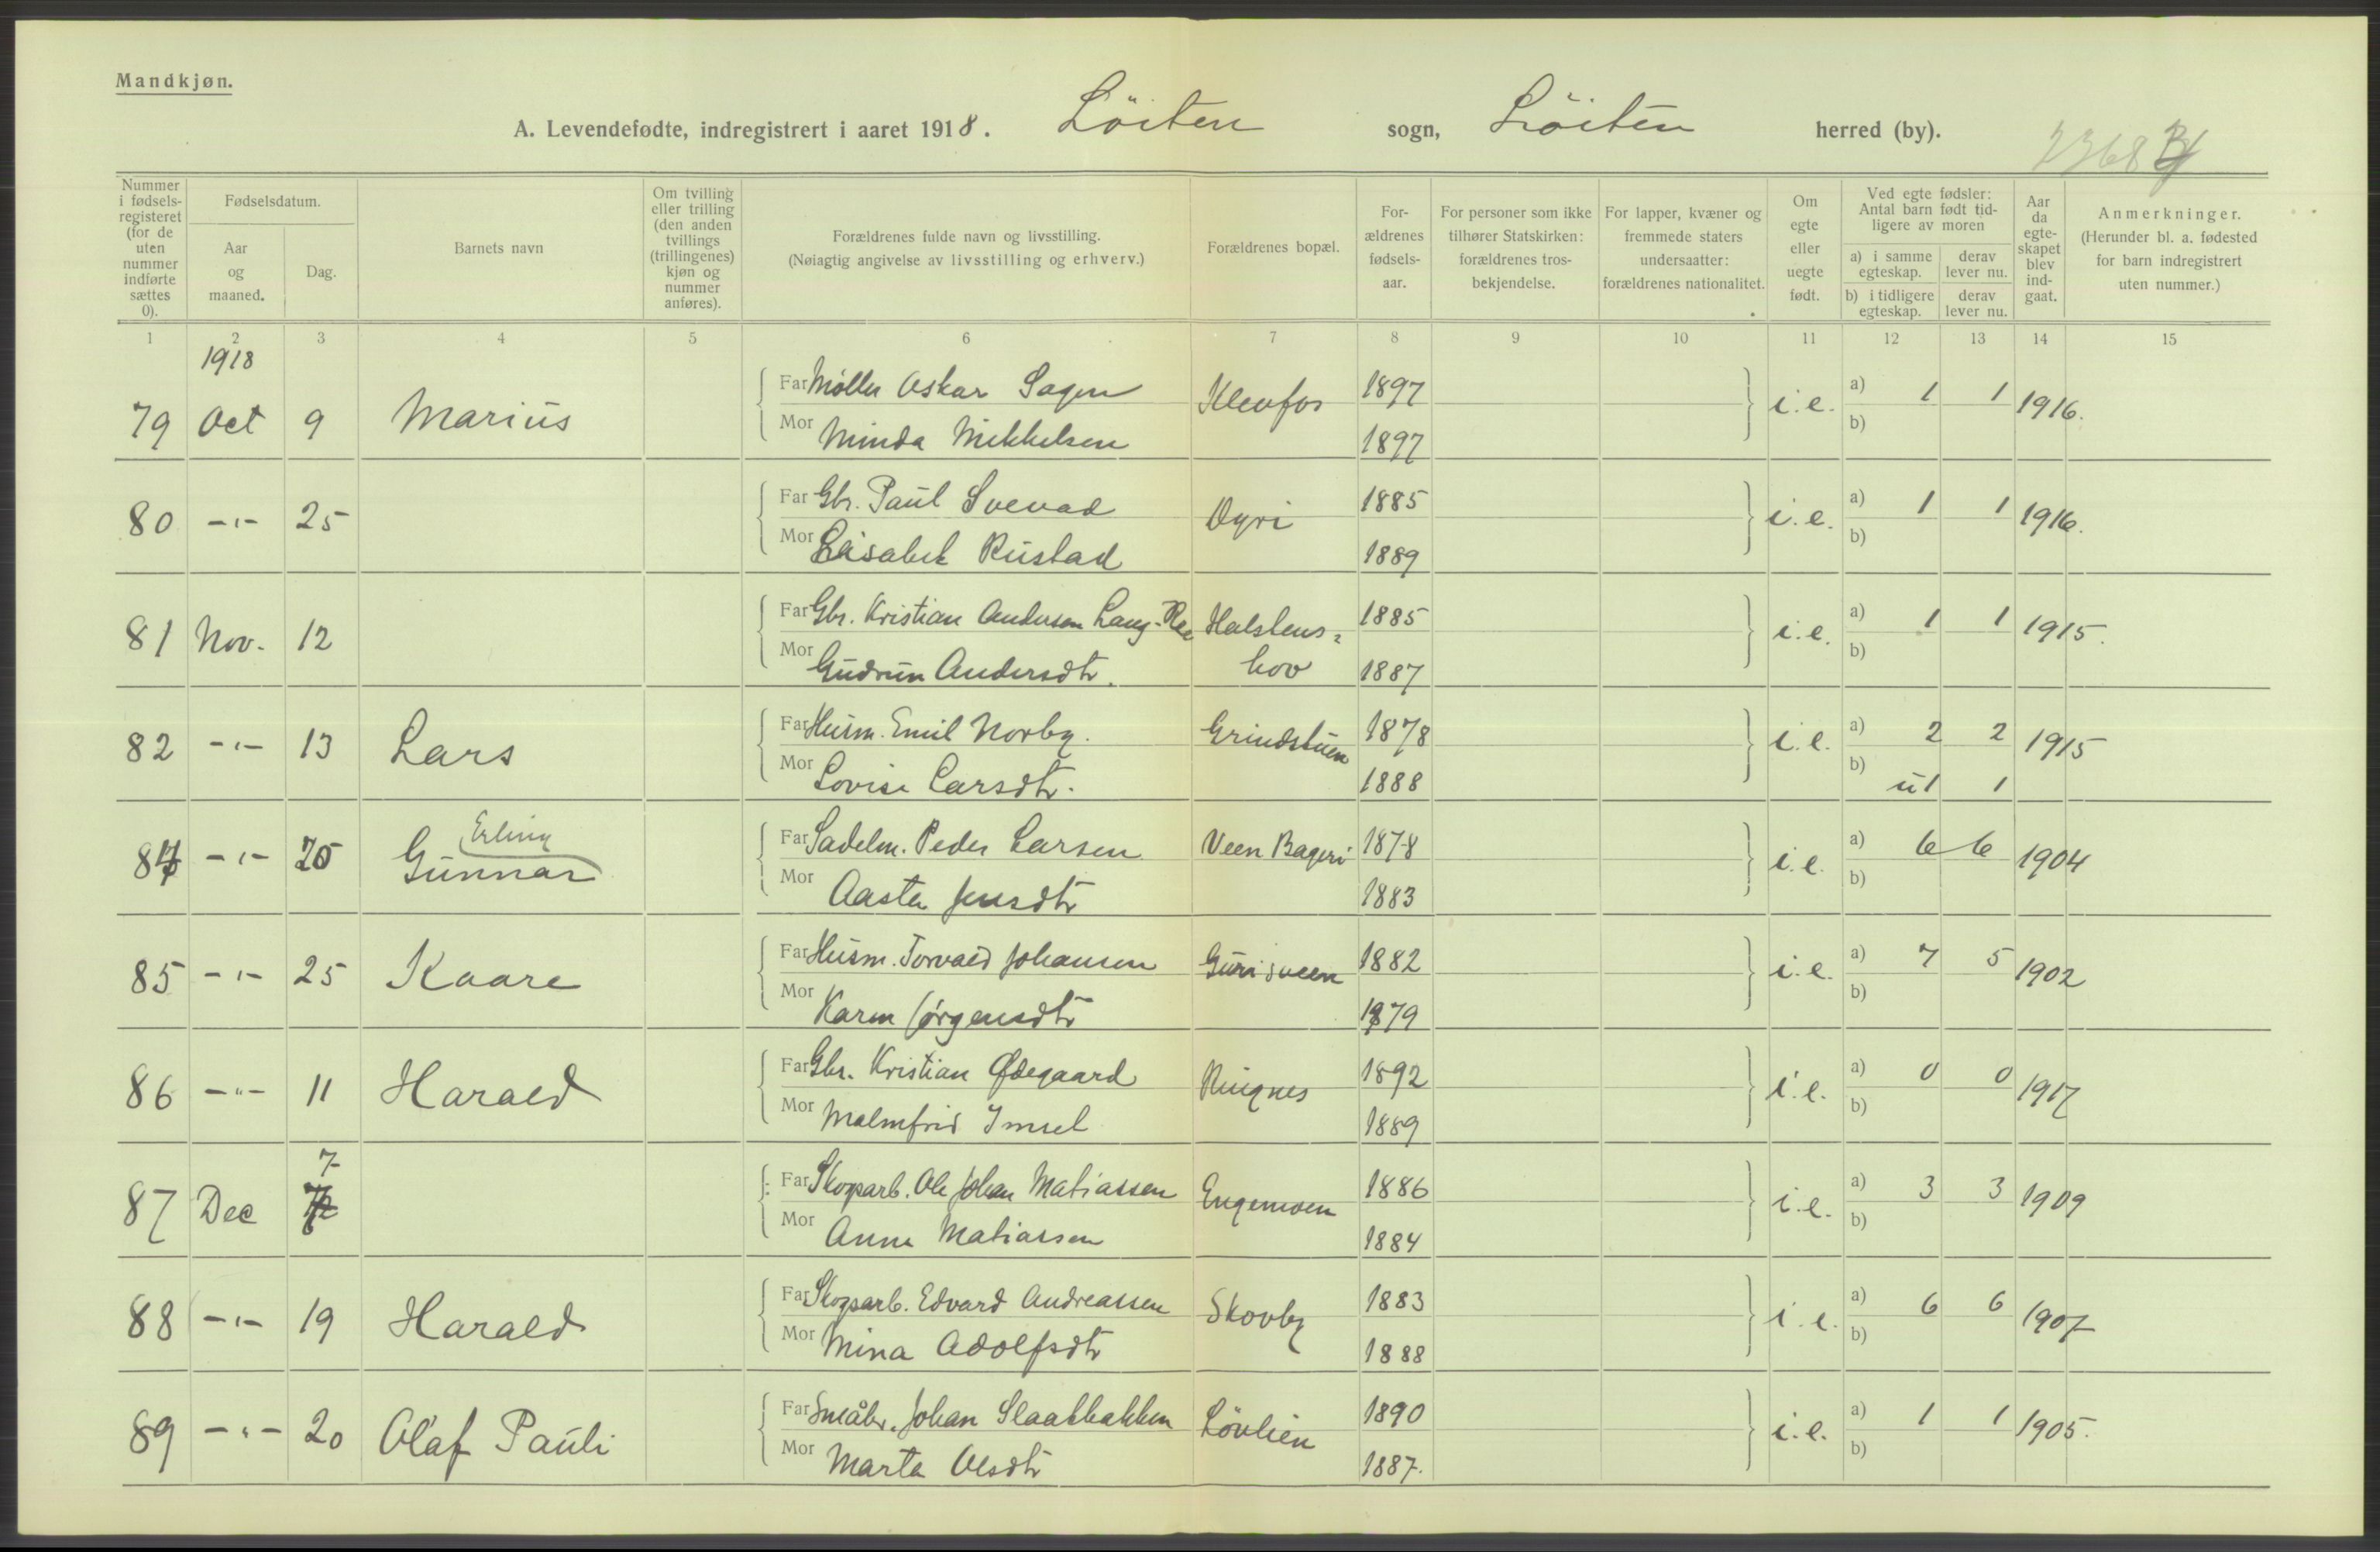 Mandkjøn.
A. Levendefødte, indregistrert i aaret 1918. Löiten sogn, Löiten herred (by).
2368
Nummer i fødsels-registeret (for de uten nummer indførte sættes 0).
Fødselsdatum.
Aar og maaned.
Dag.
Barnets navn
Om tvilling eller trilling (den anden tvillings (trillingenes) kjøn og nummer anføres).
Forældrenes fulde navn og livsstilling. (Nøiagtig angivelse av livsstilling og erhverv.)
Forældrenes bopæl.
For-ældrenes fødsels-aar.
For personer som ikke tilhører Statskirken: forældrenes tros-bekjendelse.
For lapper, kvæner og fremmede staters undersaatter: forældrenes nationalitet.
Om egte eller uegte født.
Ved egte fødsler: Antal barn født tid-ligere av moren
a) i samme egteskap. derav lever nu.
b) i tidligere egteskap. derav lever nu.
Aar da egte-skapet blev ind-gaat.
Anmerkninger. (Herunder bl. a. fødested for barn indregistrert uten nummer.)
1 2 3 4 5 6 7 8 9 10 11 12 13 14 15
1918
79 Oct 9 Marius Far Møller Oskar Sagen Klevfos 1897 i.e. a) 1 1 1916.
Mor Minda Mikkelsen 1897 b)
80 -"- 25 Far Gbr. Paul Svevad Ogri 1885 i.e. a) 1 1 1916.
Mor Lisabet Rustad 1889 b)
81 Nov. 12 Far Gbr. Kristian Andersen Lang-Ree Halstens- 1885 i.e. a) 1 1 1915.
Mor Gudrun Andersdtr. hov 1887 b)
82 -"- 13 Lars Far Husm. Emil Norby. Grindstuen 1878 i.e. a) 2 2 1915
Mor Lovise Larsdtr. 1888 b) u1 1
84 -"- 20 Erling
Gunnar Far Sadelm. Peder Larsen Veen Bageri 1878 i.e. a) 6 6 1904
Mor Aasta Jensdtr 1883 b)
85 -"- 25 Kaare Far Husm. Torvald Johansen Gurisveen 1882 i.e. a) 7 5 1902
Mor Karen Jørgensdtr 1879 b)
86 -"- 11 Harald Far Gbr. Kristian Ødegaard Ringnes 1892 i.e. a) 0 0 1917
Mor Malmfrid Imsel 1889 b)
87 Dec 7 Far Skogsarb. Ole Johan Matiassen Engemoen 1886 i.e. a) 3 3 1909
Mor Anna Matiassen 1884 b)
88 -"- 19 Harald Far Skogsarb. Edvard Andreassen Skovby 1883 i.e. a) 6 6 1907
Mor Mina Adolfsdtr 1888 b)
89 -"- 20 Olaf Pauli Far Småbr. Johan Slaabakken Lövlien 1890 i.e. a) 1 1 1905.
Mor Marta Olsdtr 1887. b)